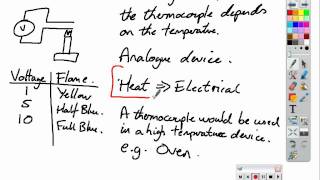 the thermocouple depends
on the temperature.
Analogue device.
Heat ⇒ Electrical
V
Voltage Flame.
1 Yellow
5 Half Blue.
10 Full Blue.
A thermocouple would be used
in a high temperature device.
e.g. Oven.